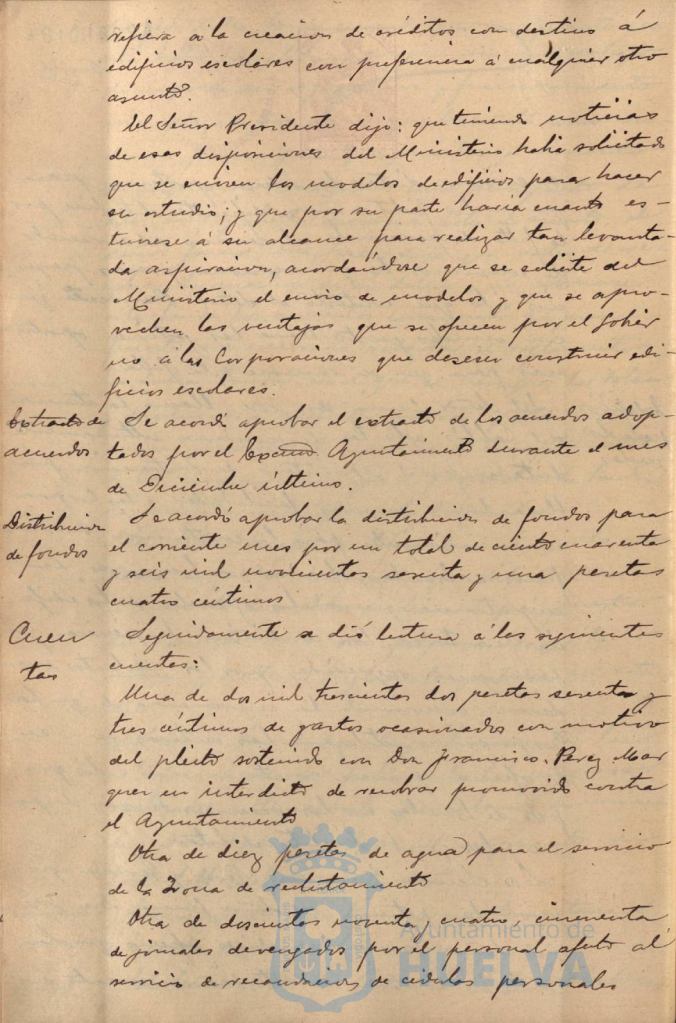 refiera á la creacion de créditos con destino á
edificios escolares con preferencia á cualquier otro
asunto.
El Señor Presidente dijo: que teniendo noticias
de esas disposiciones del Ministerio había solicitado
que se envien los modelos de edificios para hacer
su estudio; y que por su parte haria cuanto es-
tuviese á su alcance para realizar tan levanta-
da aspiracion, acordándose que se solicite del
Ministerio el envio de modelos y que se apro-
vechen las ventajas que se ofrecen por el Gobier
no á las Corporaciones que deseen construir edi-
ficios escolares.
Extracto de
acuerdos
Se acordó aprobar el extracto de los acuerdos adop-
tados por el Excmo. Ayuntamiento durante el mes
de Diciembre último.
Distribucion
de fondos
Se acordó aprobar la distribucion de fondos para
el corriente mes por un total de ciento cuarenta
y seis mil novecientas sesenta y una pesetas
cuatro céntimos
Cuen
tas
Seguidamente se dió lectura á las siguientes
cuentas:
Una de dos mil trescientas dos pesetas sesenta y
tres céntimos de gastos ocasionados con motivo
del pleito sostenido con Don Francisco Perez Mar
quez en interdicto de recobrar promovido contra
el Ayuntamiento
Otra de diez pesetas de agua para el servicio
de la Zona de reclutamiento
Otra de doscientas noventa y cuatro, cincuenta
de jornales devengados por el personal afecto al
servicio de recaudacion de cédulas personales
Ayuntamiento de
HUELVA